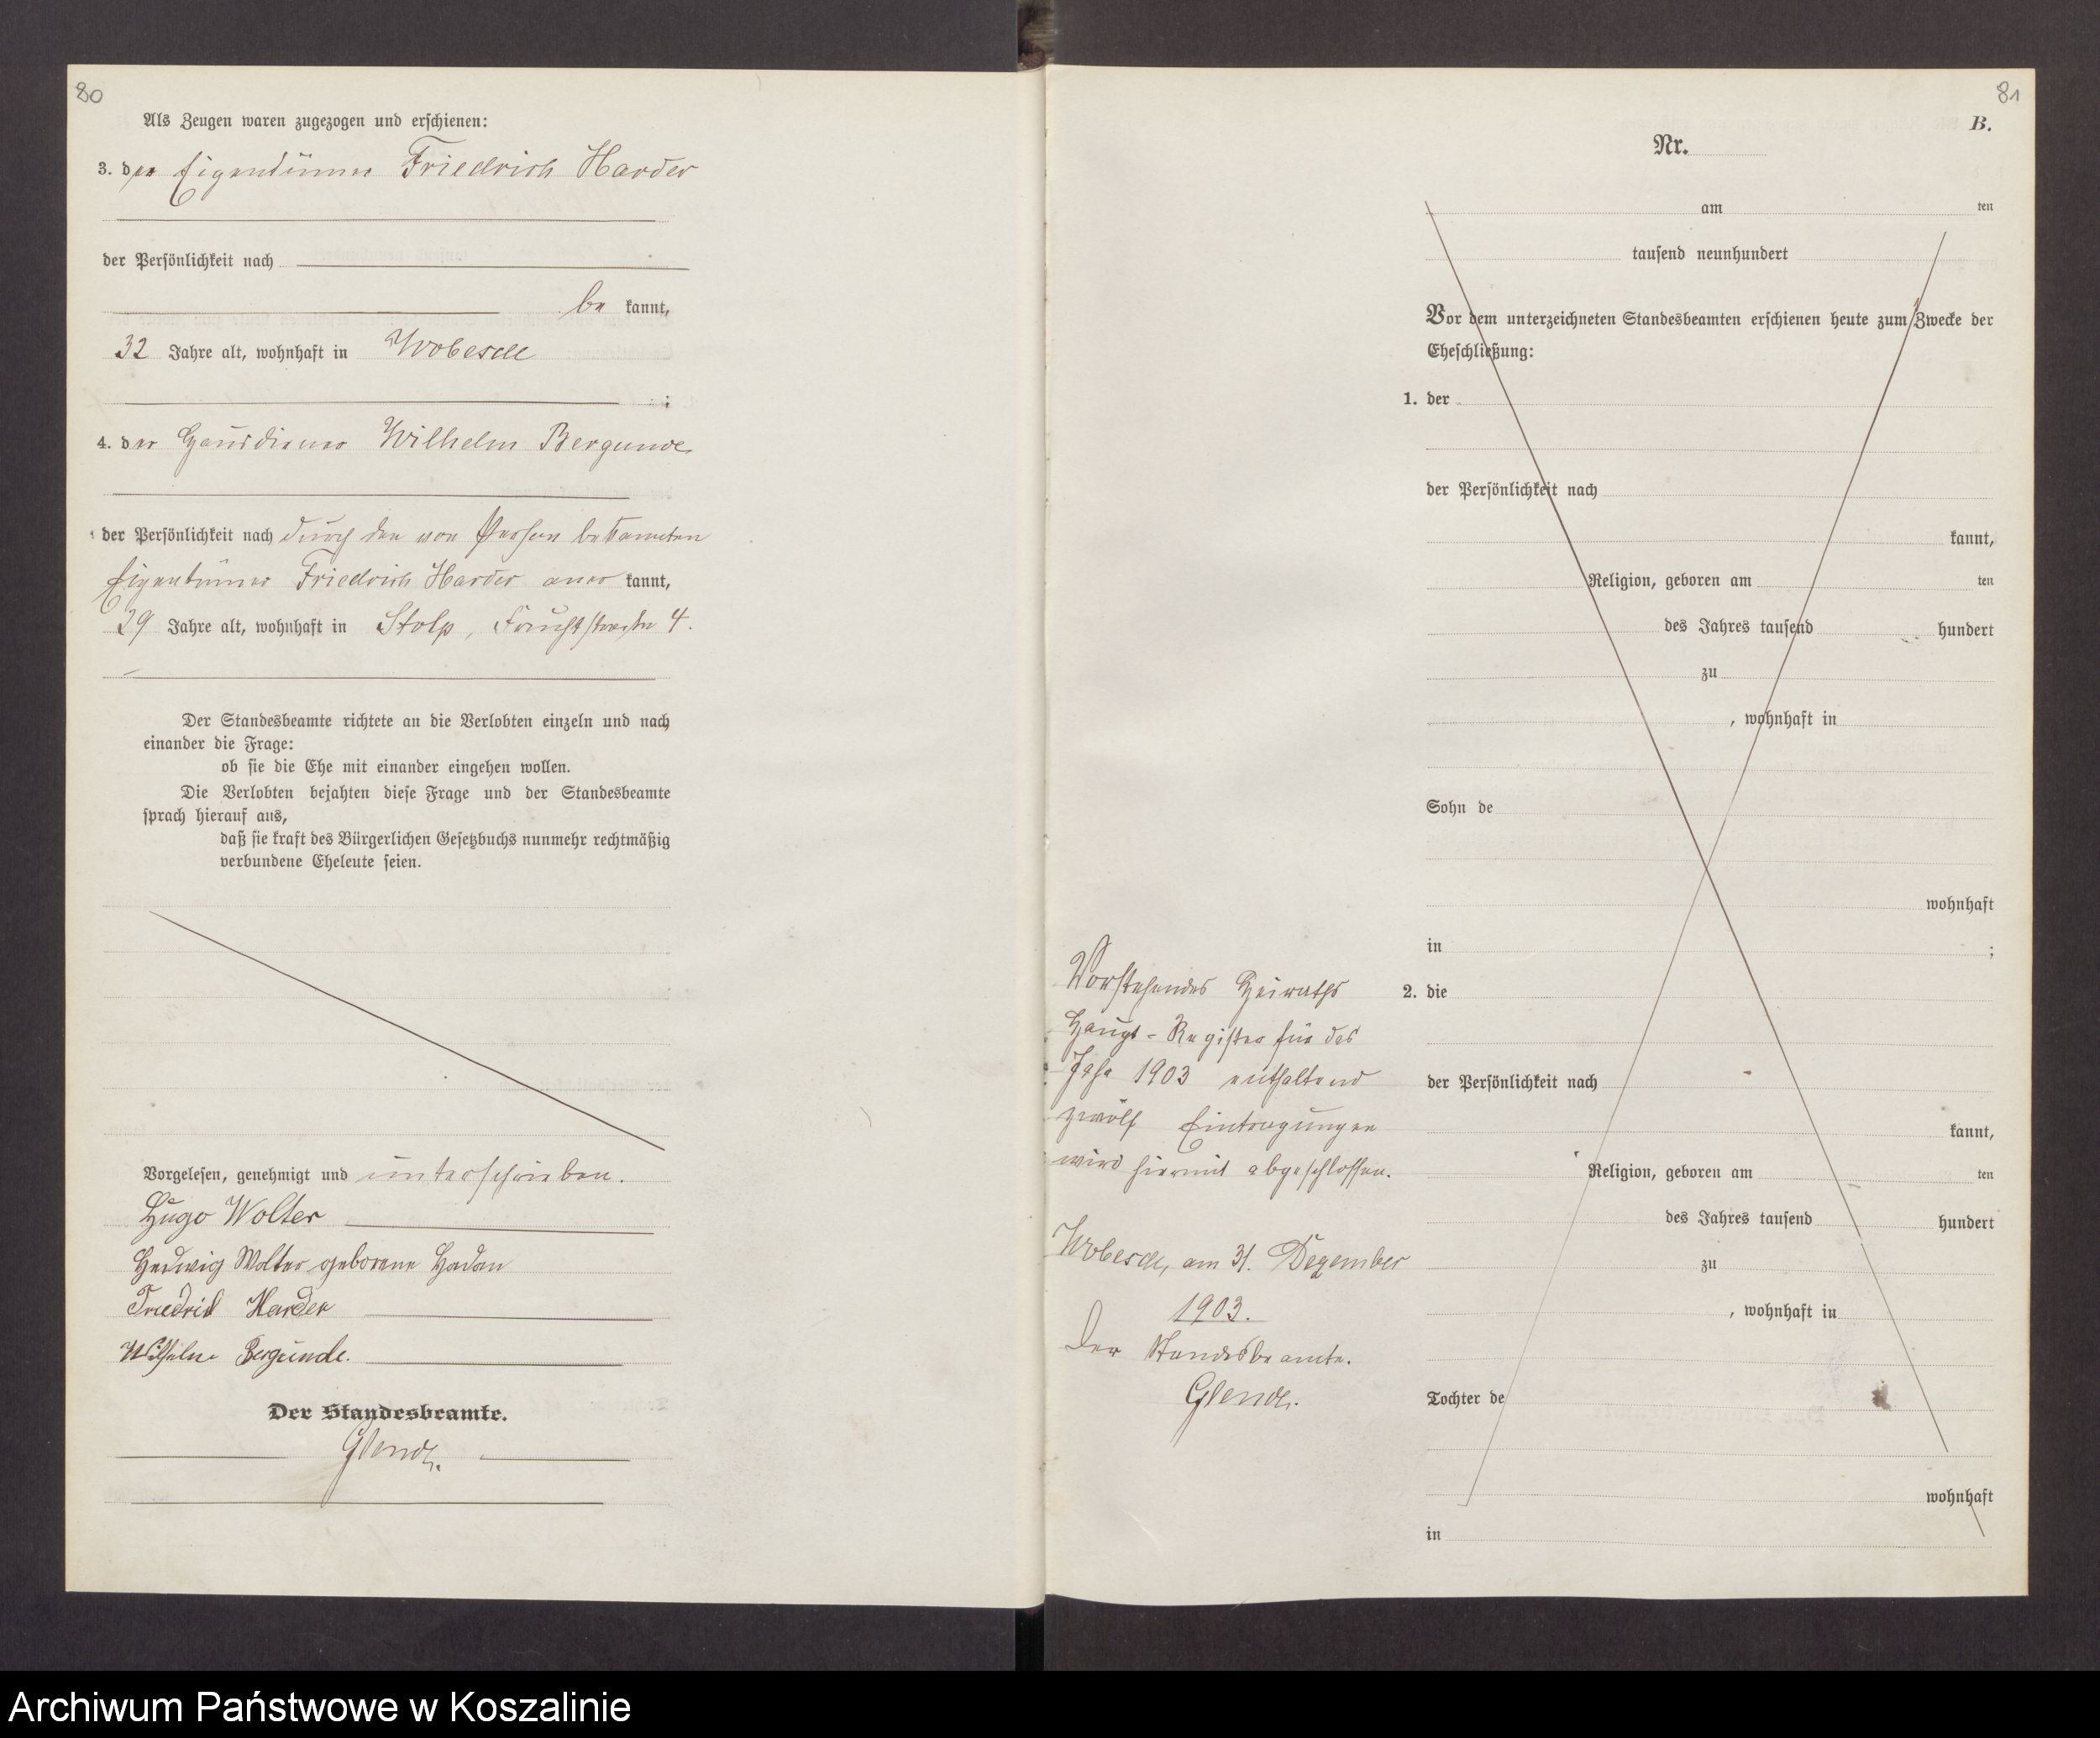 80
Als Zeugen waren zugezogen und erschienen:
3. der Eigentümer Friedrich Harder
der Persönlichkeit nach
be kannt,
32 Jahre alt, wohnhaft in Wobesde
;
4. der Hausdiener Wilhelm Bergunde
der Persönlichkeit nach durch den von Person bekannten
Eigentümer Friedrich Harder aner kannt,
29 Jahre alt, wohnhaft in Stolp, 4.
Der Standesbeamte richtete an die Verlobten einzeln und nach
einander die Frage:
ob sie die Ehe mit einander eingehen wollen.
Die Verlobten bejahten diese Frage und der Standesbeamte
sprach hierauf aus,
daß sie kraft des Bürgerlichen Gesetzbuchs nunmehr rechtmäßig
verbundene Eheleute seien.
Vorgelesen, genehmigt und unterschrieben.
Hugo Wolter
Hedwig Wolter geborene
Friedrich Harder
Wilhelm Bergunde.
Der Standesbeamte.
81
B.
Nr.
am ten
tausend neunhundert
Vor dem unterzeichneten Standesbeamten erschienen heute zum Zwecke der
Eheschließung:
1. der
der Persönlichkeit nach
kannt,
Religion, geboren am ten
des Jahres tausend hundert
zu
, wohnhaft in
Sohn de
wohnhaft
in ;
2. die
der Persönlichkeit nach
kannt,
Religion, geboren am ten
des Jahres tausend hundert
zu
, wohnhaft in
Tochter de
wohnhaft
in
Vorstehendes Heiraths
Haupt-Register für das
Jahr 1903 enthaltend
zwölf Eintragungen
wird hiermit abgeschlossen.
Wobesde, am 31. Dezember
1903.
Der Standesbeamte.
Archiwum Państwowe w Koszalinie